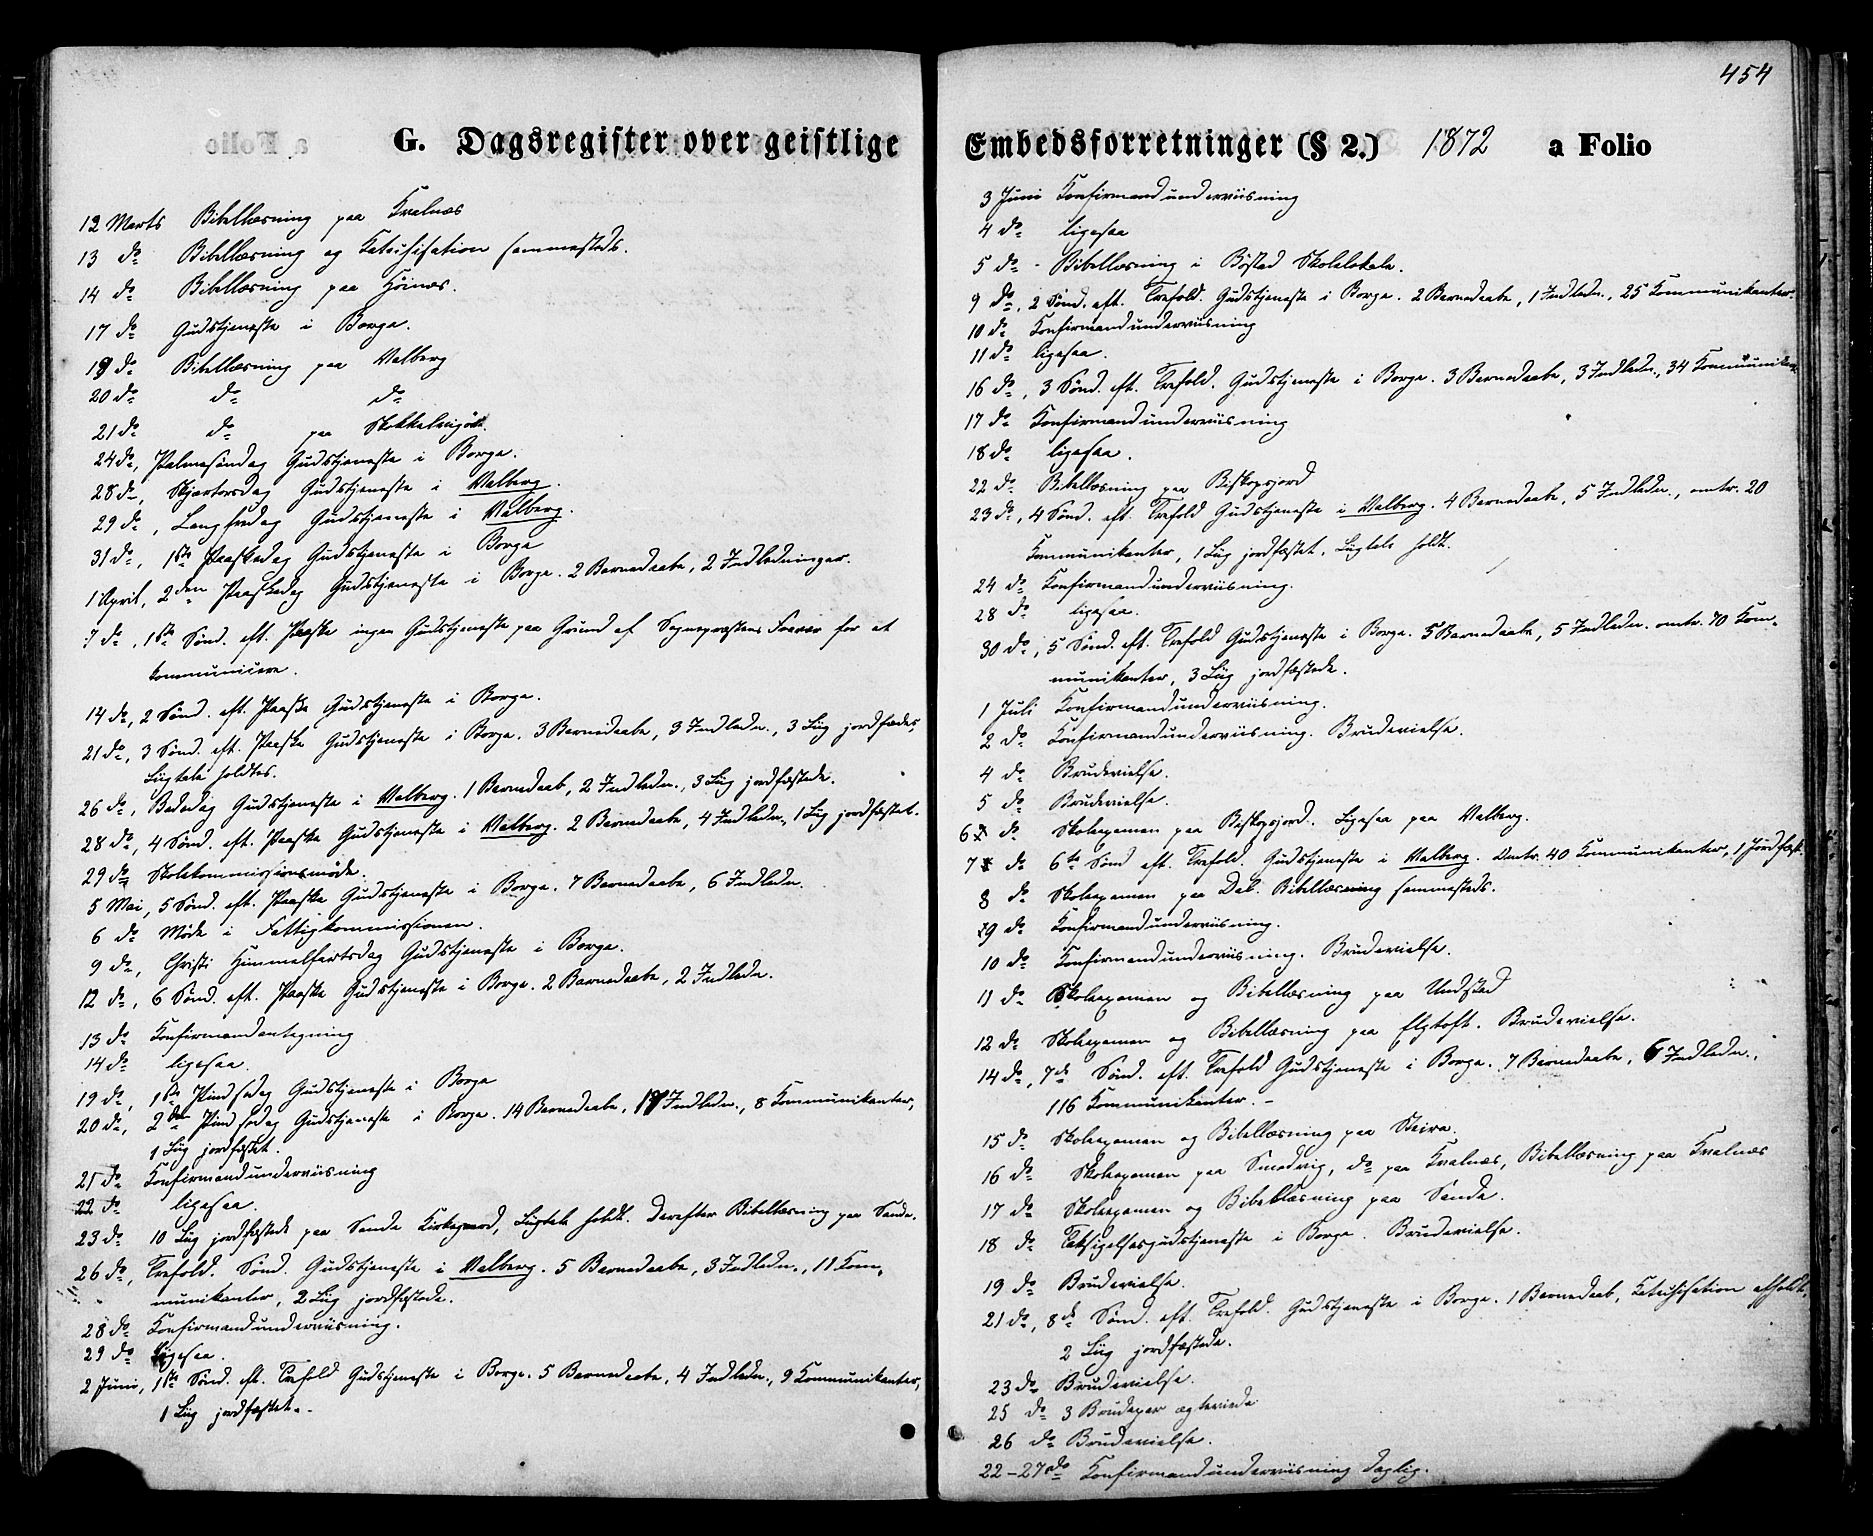 G. Dagsregister over geistlige
12 Marts Bibellæsning paa Kvalnæs
13 do Bibellæsning og Katechisation sammesteds.
14 do Bibellæsning paa
17 do Gudstjeneste i Borge.
19 do Bibellæsning paa Valberg
20 do do do
21 do do paa
24 do, Palmesøndag Gudstjeneste i Borge.
28 do, Skjærtorsdag Gudstjeneste i Valberg.
29 do, Langfredag Gudstjeneste i Valberg.
31 do, 1ste Paaskedag Gudstjeneste i Borge
1 April, 2den Paaskedag Gudstjeneste i Borge. 2 Barnedaabe, 2 Indledninger.
7 do, 1ste Sønd. eft. Paaske ingen Gudstjeneste paa Grund af Sognepræstens Fravær for at
kommunicere.
14 do, 2 Sønd. eft. Paaske Gudstjeneste i Borge.
21 do, 3 Sønd. eft. Paaske Gudstjeneste i Borge. 3 Barnedaabe, 3 Indledn., 3 Liig jordfæstede,
Liigtale holdtes.
26 do, Bededag Gudstjeneste i Valberg. 1 Barnedaab, 2 Indledn., 3 Liig jordfæstede.
28 do, 4 Sønd. eft. Paaske Gudstjeneste i Valberg. 2 Barnedaabe, 4 Indledn., 1 Liig jordfæstet.
29 do Skolekommissionsmøde.
5 Mai, 5 Sønd. eft. Paaske Gudstjeneste i Borge. 7 Barnedaabe, 6 Indledn.
6 do Møde i Fattigkommissionen.
9 do, Christi Himmelfartsdag Gudstjeneste i Borge.
12 do, 6 Sønd. eft. Paaske Gudstjeneste i Borge. 2 Barnedaabe, 2 Indledn.
13 do Konfirmandantegning
14 do ligesaa.
19 do, 1ste Pindsedag Gudstjeneste i Borge
20 do, 2den Pindsedag Gudstjeneste i Borge. 14 Barnedaabe, Indledn., 8 Kommunikanter,
1 Liig jordfæstet.
21 do Konfirmandunderviisning
22 do ligesaa.
23 do 10 Liig jordfæstede paa Sande Kirkegaard, Liigtale holdt. Derefter Bibellæsning paa Sande.
26 do, Trefold. Sønd. Gudstjeneste i Valberg. 5 Barnedaabe, 3 Indledn., 11 Kom-
munikanter, 2 Liig jordfæstede.
28 do Konfirmandunderviisning.
29 do Ligesaa.
2 Juni, 1ste Sønd. eft. Trefold Gudstjeneste i Borge. 5 Barnedaabe, 4 Indledn., 9 Kommunikanter,
1 Liig jordfæstet.
454
Embedsforretninger (§ 2.) 1872 a Folio
3 Juni Konfirmandunderviisning
4 do ligesaa
5 do Bibellæsning i Bøstad Skolelokale.
9 do, 2 Sønd. eft. Trefold. Gudstjeneste i Borge. 2 Barnedaabe, 1 Indledn., 25 Kommunikanter.
10 do Konfirmandunderviisning
11 do ligesaa.
16 do, 3 Sønd. eft. Trefold. Gudstjeneste i Borge. 3 Barnedaabe, 3 Indledn., 34 Kommunikan.
17 do Konfirmandunderviisning
18 do ligesaa.
22 do Bibellæsning paa Biskopsjord
23 do, 4 Sønd. eft. Trefold Gudstjeneste i Valberg. 4 Barnedaabe, 5 Indledn., omtr. 20
Kommunikanter, 1 Liig jordfæstet, Liigtale holdt.
24 do Konfirmandunderviisning.
28 do ligesaa.
30 do, 5 Sønd. eft. Trefold Gudstjeneste i Borge. 5 Barnedaabe, 5 Indledn. omtr. 70 Kom-
munikanter, 3 Liig jordfæstede.
1 Juli Konfirmandunderviisning.
2 do Konfirmandunderviisning. Brudevielse.
4 do Brudevielse.
5 do Brudevielse.
6 do Skoleexamen paa Biskopsjord. Ligesaa paa Valberg.
7 do 6te Sønd eft. Trefold. Gudstjeneste i Valberg. Omtr. 40 Kommunikanter, 1 Jordfæst.
8 do Skoleexamen paa Dal. Bibellæsning sammesteds.
9 do Konfirmandunderviisning.
10 do Konfirmandunderviisning. Brudevielse.
11 do Skoleexamen og Bibellæsning paa Undstad
12 do Skoleexamen og Bibellæsning paa Elgtoft. Brudevielse.
14 do, 7de Sønd. eft. Trefold Gudstjeneste i Borge. 7 Barnedaabe, 6 Indledn.,
116 Kommunikanter. -
15 do Skoleexamen og Bibellæsning paa Steira.
16 do Skoleexamen paa Smedvig, do paa Kvalnæs, Bibellæsning paa Kvalnæs
17 do Skoleexamen og Bibellæsning paa Sande.
18 do Taksigelsesgudstjeneste i Borge. Brudevielse.
19 do Brudevielse.
21 do, 8de Sønd. eft. Trefold. Gudstjeneste i Borge. 1 Barnedaab, Katechisation afholdt,
2 Liig jordfæstede.
23 do Brudevielse.
25 do 3 Brudepar ægteviede
26 do Brudevielse.
22-27 do Konfirmandunderviisning daglig.